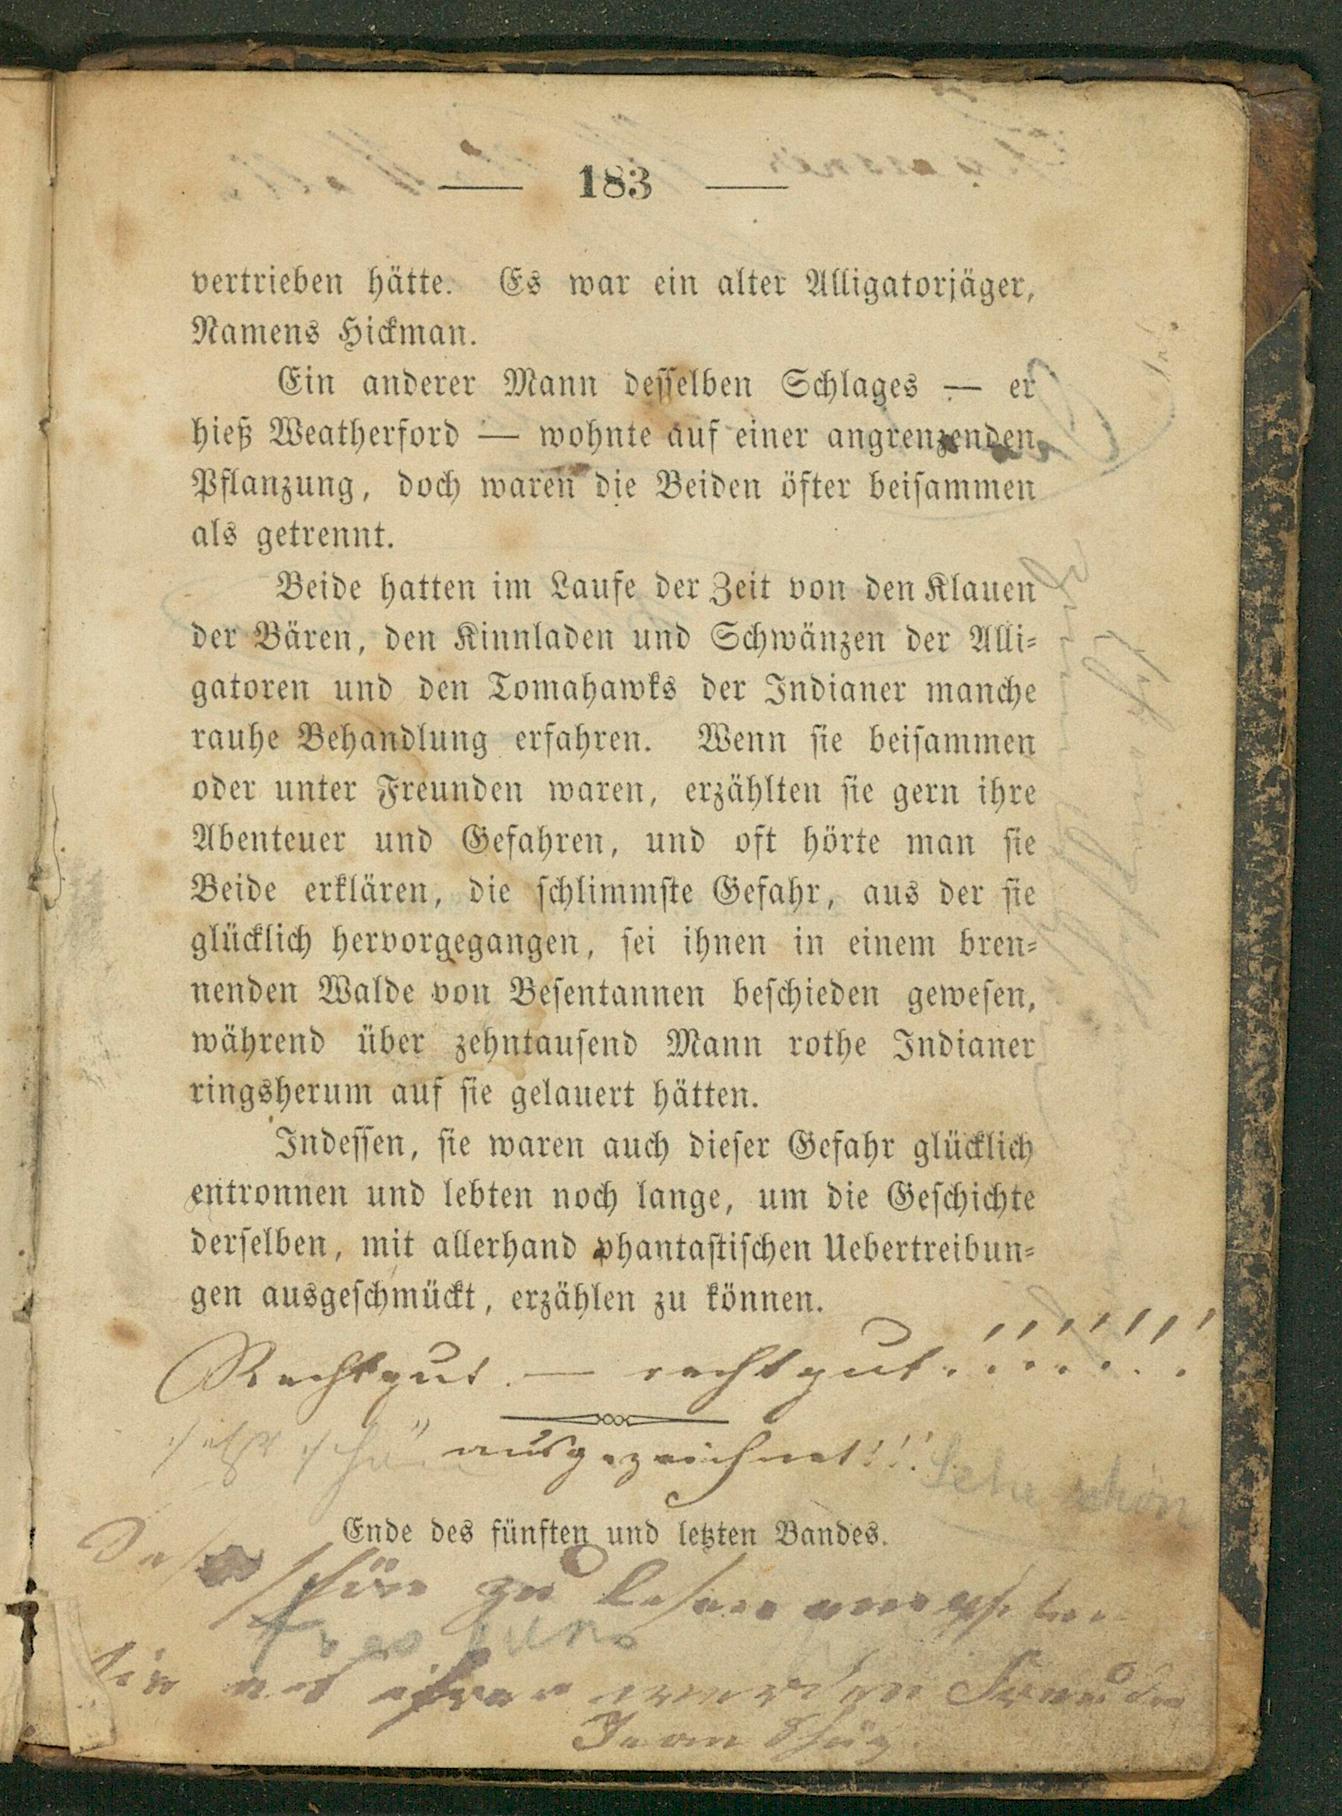 — 183 —
vertrieben hätte. Es war ein alter Alligatorjäger,
Namens Hickman.
Ein anderer Mann desselben Schlages — er
hieß Weatherford — wohnte auf einer angrenzenden
Pflanzung, doch waren die Beiden öfter beisammen
als getrennt.
Beide hatten im Laufe der Zeit von den Klauen
der Bären, den Kinnladen und Schwänzen der Alli-
gatoren und den Tomahawks der Indianer manche
rauhe Behandlung erfahren. Wenn sie beisammen
oder unter Freunden waren, erzählten sie gern ihre
Abenteuer und Gefahren, und oft hörte man sie
Beide erklären, die schlimmste Gefahr, aus der sie
glücklich hervorgegangen, sei ihnen in einem bren-
nenden Walde von Besentannen beschieden gewesen,
während über zehntausend Mann rothe Indianer
ringsherum auf sie gelauert hätten.
Indessen, sie waren auch dieser Gefahr glücklich
entronnen und lebten noch lange, um die Geschichte
derselben, mit allerhand phantastischen Uebertreibun-
gen ausgeschmückt, erzählen zu können.
Rechtgut. — rechtgut.!!!!!!!
sehr schön ausgezeichnet!!! Sehr schön
Ende des fünften und letzten Bandes.
schön zu lesen